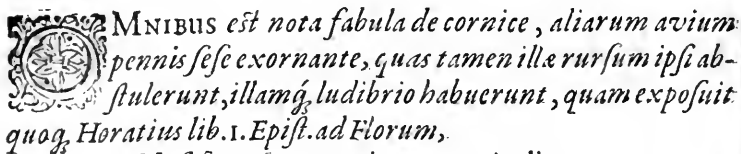 OMNIBUS est nota fabula de cornice, aliarum avium
pennis sese exornante, quas tamen illæ rursum ipsi ab-
stulerunt, illamq́; ludibrio habuerunt, quam exposuit
quoq; Horatius lib. 1. Epist. ad Florum,